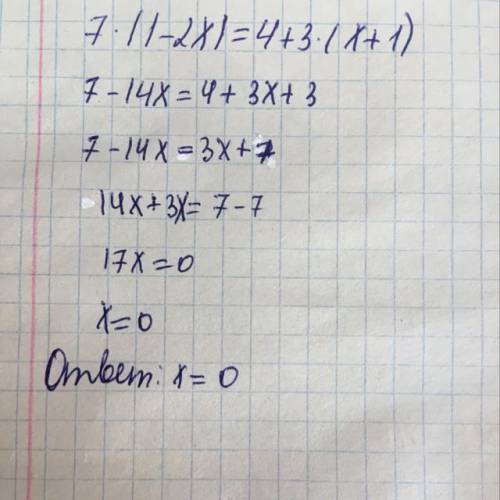 7·(1-2x)=4+3·(x+1)
7-14x=4+3x+3
7-14x=3x+7
14x+3x=7-7
17x=0
x=0
Ответ: x=0